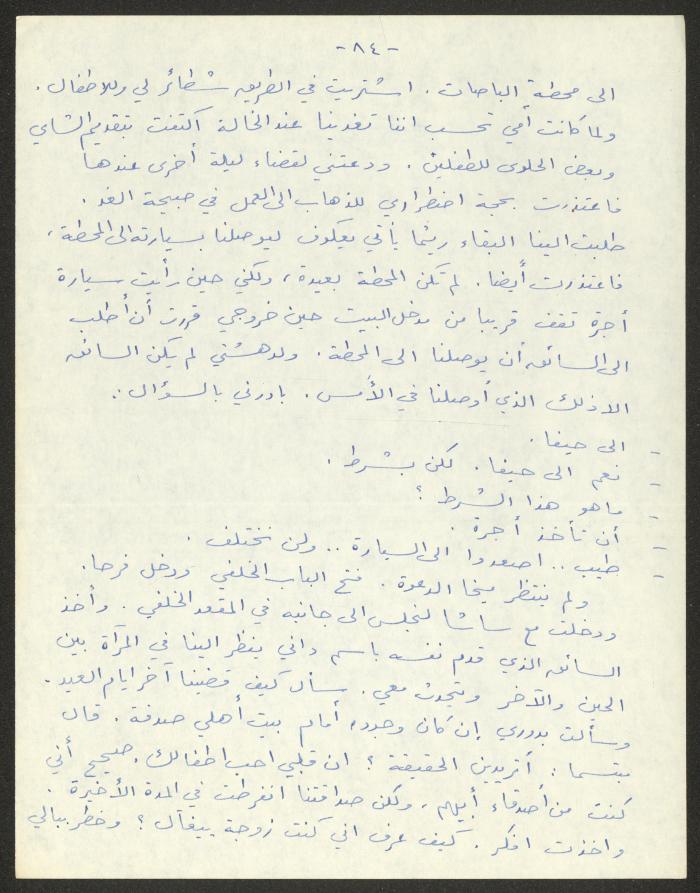 -٨٤-
الى محطة الباصات. اشتريت في الطريق شطائر لي وللاطفال.
ولما كانت أمي تحسب اننا تغدينا عند الخالة اكتفت بتقديم الشاي
وبعض الحلوى للطفلين. ودعتني لقضاء ليلة أخرى عندها
فاعتذرت بحجة اضطراري للذهاب الى العمل في صبيحة الغد.
طلبت الينا البقاء ريثما يأتي يعكوف ليوصلنا بسيارته الى المحطة،
فاعتذرت أيضا. لم تكن المحطة بعيدة، ولكني حين رأيت سيارة
أجرة تقف قريبا من مدخل البيت حين خروجي قررت أن أطلب
الى السائق أن يوصلنا الى المحطة. ولدهشتي لم يكن السائق
الا ذلك الذي أوصلنا في الأمس. بادرني بالسؤال:
- الى حيفا.
- نعم الى حيفا. لكن بشرط.
- ما هو هذا الشرط؟
- أن تأخذ أجرة.
- طيب.. اصعدوا الى السيارة.. ولن نختلف.
ولم ينتظر ميخا الدعوة. فتح الباب الخلفي ودخل فرحا.
ودخلت مع ساشا لنجلس الى جانبه في المقعد الخلفي. وأخذ
السائق الذي قدم نفسه باسم داني ينظر الينا في المرآة بين
الحين والآخر ويتحدث معي. سأل كيف قضينا آخر ايام العيد.
وسألت بدوري إن كان وجوده أمام بيت أهلي صدفة. قال
مبتسما: أتريدين الحقيقة؟ ان قلبي احب اطفالك. صحيح أني
كنت من أصدقاء أبيهم، ولكن صداقتنا انفرطت في المدة الأخيرة.
واخذت افكر. كيف عرف اني كنت زوجة ييغآل؟ وخطر ببالي